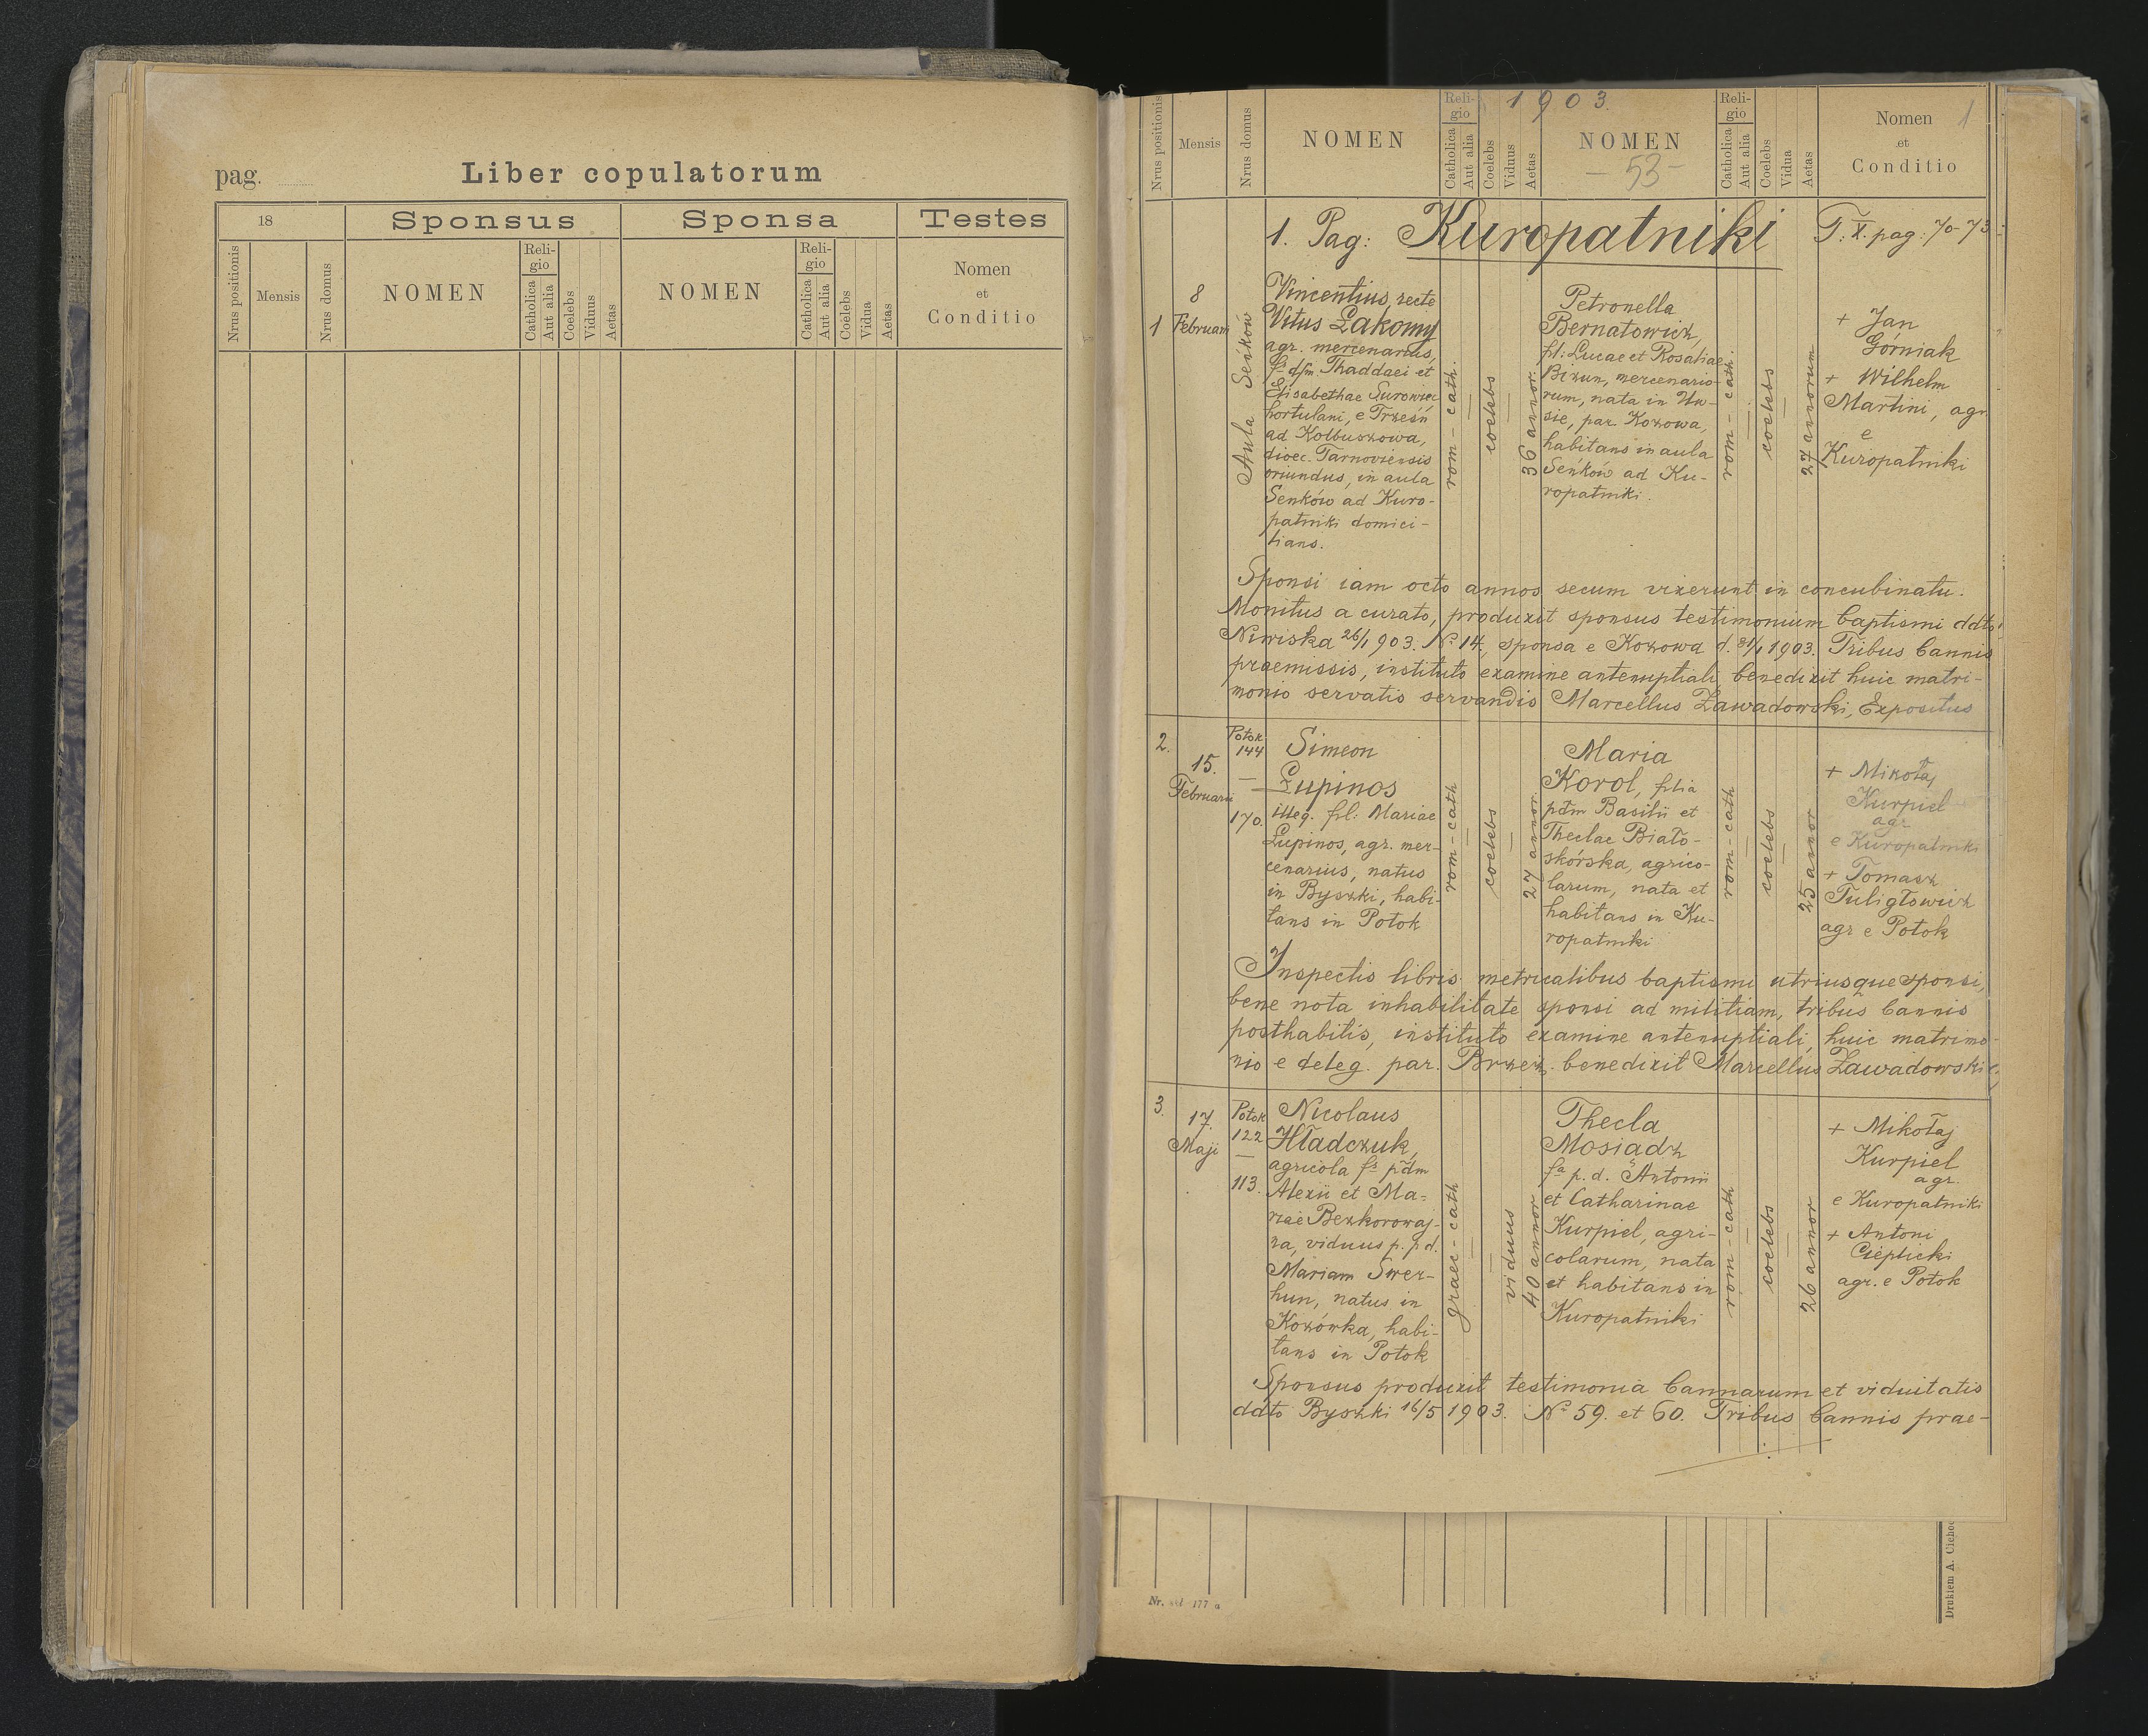 pag.
Liber copulatorum
18
Sponsus
Sponsa
Testes
Nrus positionis
Mensis
Nrus domus
NOMEN
Reli-
gio
Catholica
Aut alia
Coelebs
Viduus
Aetas
NOMEN
Reli-
gio
Catholica
Aut alia
Coelebs
Vidua
Aetas
Nomen
et
Conditio
1903.
1
Nrus positionis
Mensis
Nrus domus
NOMEN
Reli-
gio
Catholica
Aut alia
Coelebs
Viduus
Aetas
NOMEN
– 53 –
Reli-
gio
Catholica
Aut alia
Coelebs
Vidua
Aetas
Nomen
et
Conditio
1. Pag: Kuropatniki T. X. pag: 70-73
1
8
Februarii
Aula Seńków
Vincentius, recte
Vitus Łakomy
agr. mercenarius,
Thaddaei et
Elisabethae Surowiec
hortulani, e Trześń
ad Kolbuszowa,
dioec. Tarnoviensis
oriundus, in aula
Seńków ad Kuro-
patniki domici-
lians.
rom-cath.
coelebs
36 annor.
Petronella
Bernatowicz,
fil: Lucae et Rosaliae
Bizun, mercenario-
rum, nata in Uw-
sie, par Kozowa,
habitans in aula
Seńków ad Ku-
ropatniki.
rom-cath.
coelebs
27 annorum
+ Jan
Górniak
+ Wilhelm
Martini, agr
e
Kuropatniki
Sponsi iam octo annos secum vixerunt in concubinatu.
Monitus a curato, produxit sponsus testimonium baptismi ddto
Niwiska 26/1 903. No 14, sponsa e Kozowa d. 31/1 1903. Tribus bannis
praemissis, instituto examine antenuptiali benedixit huic matri-
monio servatis servandis Marcellus Zawadowski, Expositus
2.
15.
Februarii
Potok
144
—
170.
Simeon
Łupinos
illeg. fil: Mariae
Łupinos, agr. mer-
cenarius, natus
in Byszki, habi-
tans in Potok
rom-cath
coelebs
27 annor.
Maria
Korol, filia
pdm Basilii et
Theclae Biało-
skórska, agrico-
larum, nata et
habitans in Ku-
ropatniki
rom-cath
coelebs
25 annor
+ Mikołaj
Kurpiel
agr.
e Kuropatniki
+ Tomasz
Tuligłowicz
agr e Potok
Inspectis libris metricalibus baptismi utriusque sponsi,
bene nota inhabilitate sponsi ad militiam, tribus bannis
posthabitis, instituto examine antenuptiali, huic matrimo-
nio e deleg. par. Brzeż. benedixit Marcellus Zawadowski
3.
17.
Maji
Potok
122
—
113.
Nicolaus
Hładczuk,
agricola fs pdm
Alexii et Ma-
riae Bezkorowaj-
na, viduus p. pd.
Mariam Swer-
hun, natus in
Kozówka, habi-
tans in Potok
graec-cath
viduus
40 annor
Thecla
Mosiadz
fa p.d. Antonii
et Catharinae
Kurpiel, agri-
colarum, nata
et habitans in
Kuropatniki
rom-cath
coelebs
26 annor
+ Mikołaj
Kurpiel
agr.
e Kuropatniki
+ Antoni
Cieplicki
agr. e Potok
Sponsus produxit testimonia bannorum et viduitatis
ddto Byszki 16/5 1903. No 59. et 60. Tribus bannis prae-
Nr. 177 a
Drukiem A.